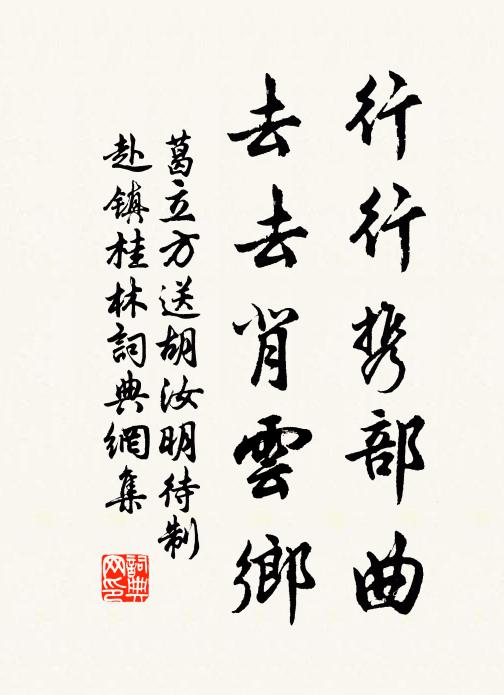 行行携部曲
去去背雲鄉
葛立方送胡汝明待制
赴镇桂林詞典網集
詞典
网印